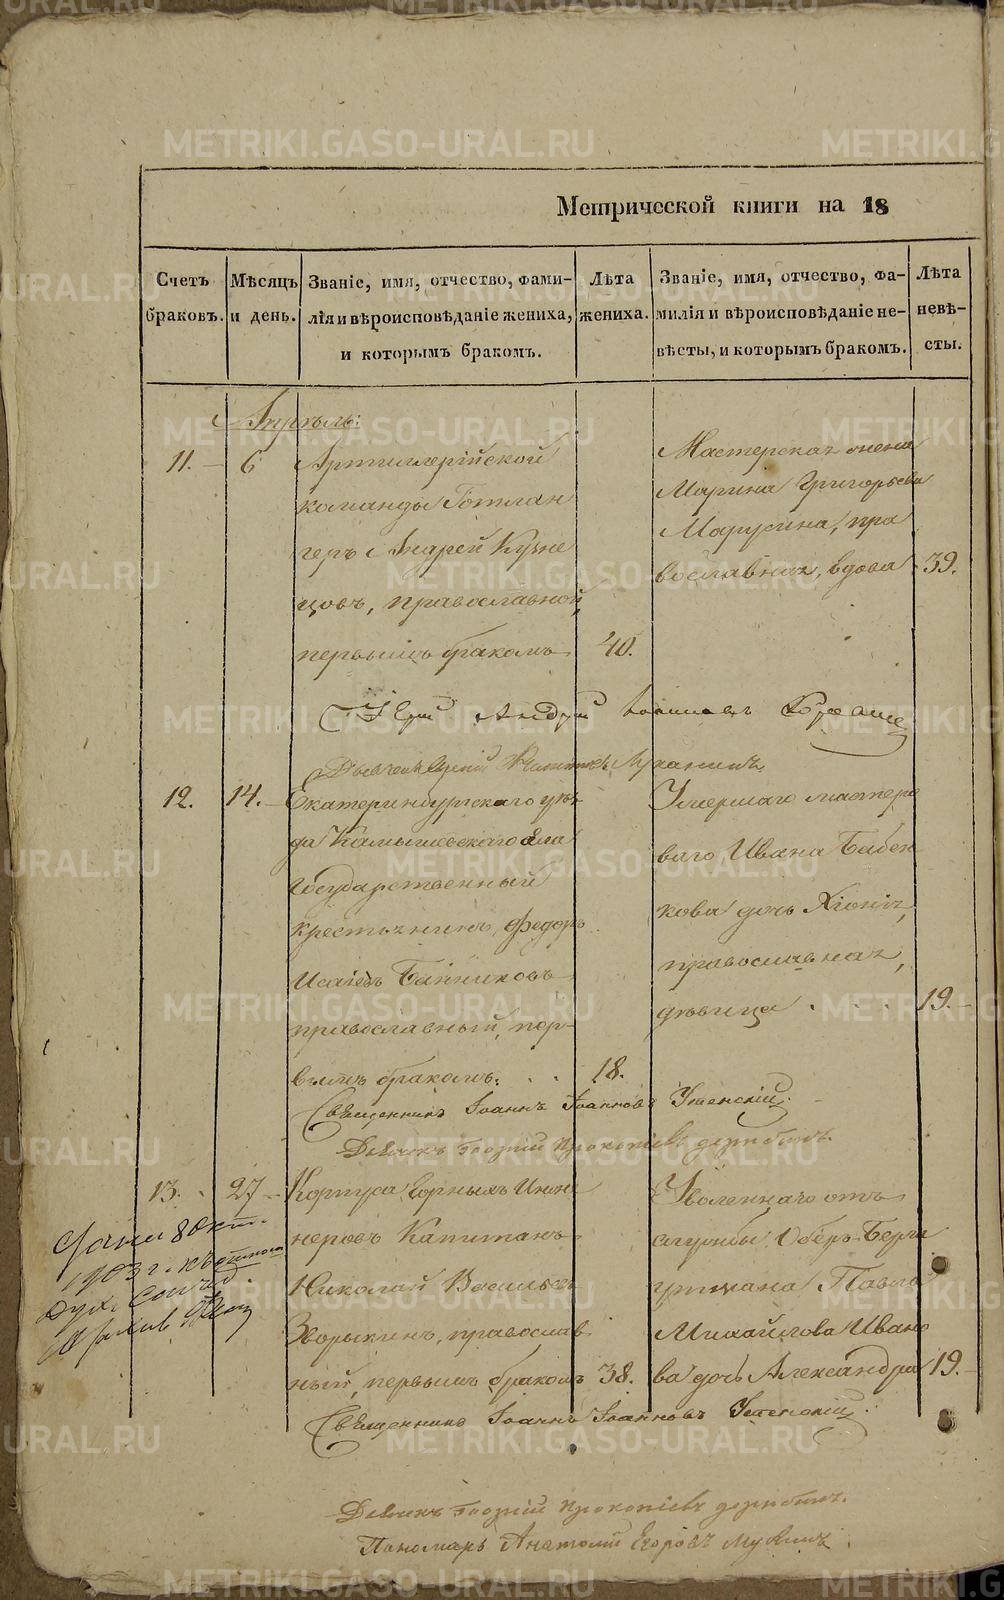 Метрической книги на 18
Счетъ браковъ.
Мѣсяцъ и день.
Званіе, имя, отчество, фами-
лія и вѣроисповѣданіе жениха,
и которымъ бракомъ.
Лѣта
жениха.
Званіе, имя, отчество, фа-
милія и вѣроисповѣданіе не-
вѣсты, и которымъ бракомъ.
Лѣта
невѣ-
сты.
Апрѣль:
11. 6
Артиллерійской
команды Готлан
геръ Андрей Кузне
цовъ, православной,
первымъ бракомъ
40.
Мастерская жена
Марина Григорьева
Марусина, пра
вославная, вдова
39.
Іерей Андрей
12. 14.
Екатеринбургскаго уѣз
да Камышевскаго села
государственный
крестьянинъ, Федоръ
Исаіевъ Банниковъ
православный, пер-
вымъ бракомъ.
18.
Умершаго мастеро
ваго Ивана Бабен
кова дочь Хіонія,
православная,
дѣвица
19.
Священникъ Іоаннъ Іоанновъ Успенскій.
Дьячекъ Георгій Прокопіевъ
13. 27
Корпуса Горныхъ Инже
неровъ Капитанъ
Николай Васильевъ
Зворыкинъ, православ
ный, первымъ бракомъ
38.
Уволеннаго отъ
службы Оберъ-Берг
гутмана Павла
Михайлова Ивано
ва дочь Александра
19.
8 Окт.
1903 г.
Дух.
Священникъ Іоаннъ Іоанновъ Успенскій.
Дьячекъ Георгій Прокопіевъ
Пономарь Анатолій Егоровъ
METRIKI.GASO-URAL.RU